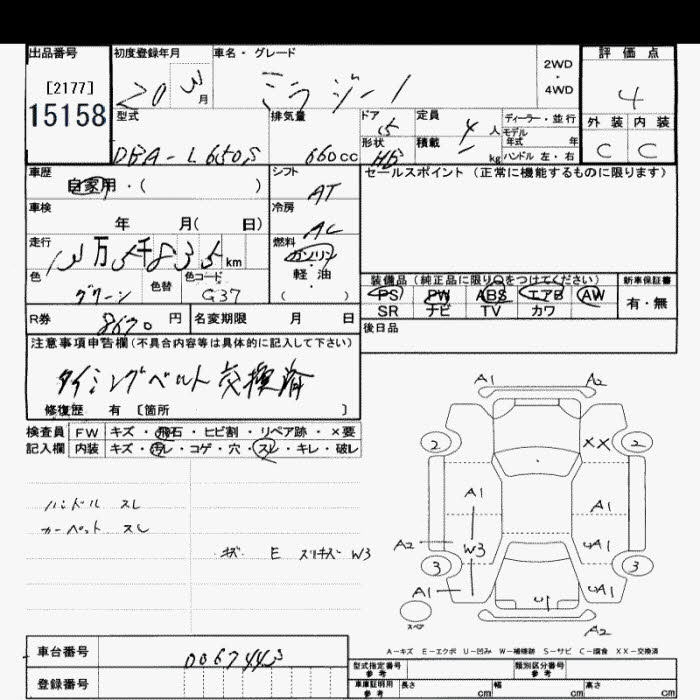 出品番号 初度登録年月 車名・グレード 2WD・4WD 評価点
[2177]
15158
20 3 月 ミラ ジーノ 4
型式 排気量 ドア 定員 ディーラー・並行 外装 内装
DBA-L650S 660cc 5 4人 モデル年式 年 C C
形状 積載 kg ハンドル 左・右
HB
車歴 シフト セールスポイント (正常に機能するものに限ります)
自家用・( ) AT
車検 冷房
年 月( 日) AC
走行 燃料
13万5千835km ガソリン
軽・油
( )
色 色替 色コード
グリーン G37
装備品 (純正品に限り○をつけてください) 新車保証書
PS PW ABS エアB AW 有・無
SR ナビ TV カワ
R券 8670円 名変期限 月 日
後日品
注意事項申告欄(不具合内容等は具体的に記入して下さい)
タイミングベルト交換済
修復歴 有 [箇所 ]
検査員 FW キズ・飛石・ヒビ割・リペア跡・×要
記入欄 内装 キズ・汚レ・コゲ・穴・スレ・キレ・破レ
ハンドル スレ
カーペット スレ
キズ E スリキズ W3
A1 A2
2 XX 2
A1 A1
A2 W3 A1
3 3
A1 U1 A1
スペア A2
A-キズ E-エクボ U-凹み W-補修跡 S-サビ C-腐食 XX-交換済
車台番号 0067443
登録番号
型式指定番号 参考 類別区分番号 参考
車庫証明用 参考 長さ cm 幅 cm 高さ cm